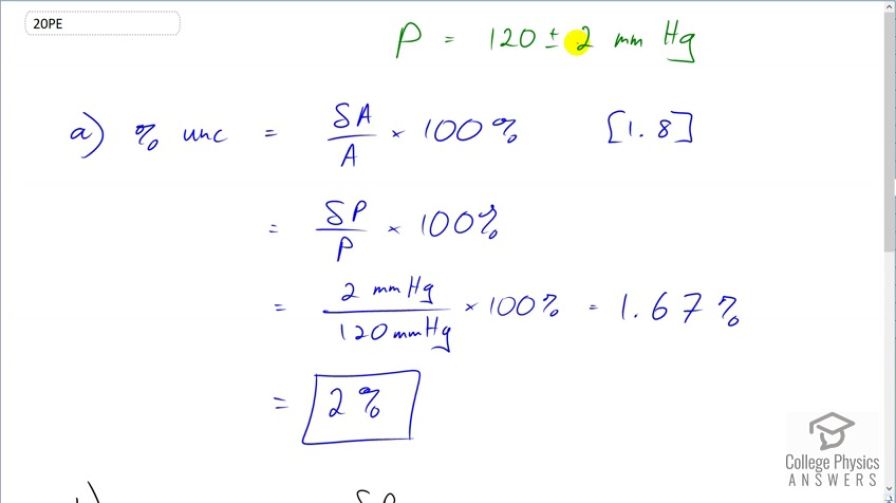 20PE
P = 120 ± 2 mm Hg
a) % unc = δA/A × 100% [1.8]
= δP/P × 100%
= 2 mmHg/120mmHg × 100% = 1.67%
= 2%
College Physics
ANSWERS